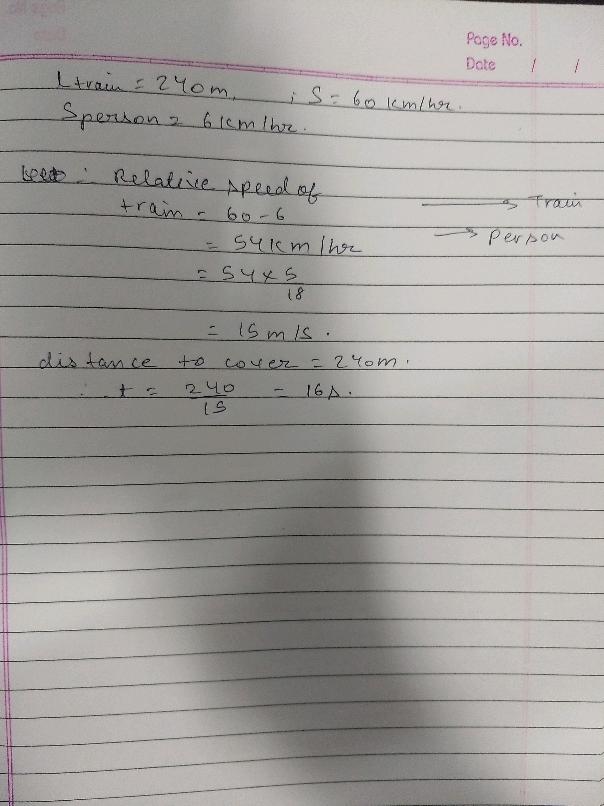 Page No.
Date / /
L train = 240m, ; S = 60 km/hr.
S person = 6 km/hr.
∴ Relative speed of
train = 60-6
→ Train
= 54 km/hr
→ Person
= 54 x 5
18
= 15 m/s.
distance to cover = 240m.
∴ t = 240 = 16s.
15